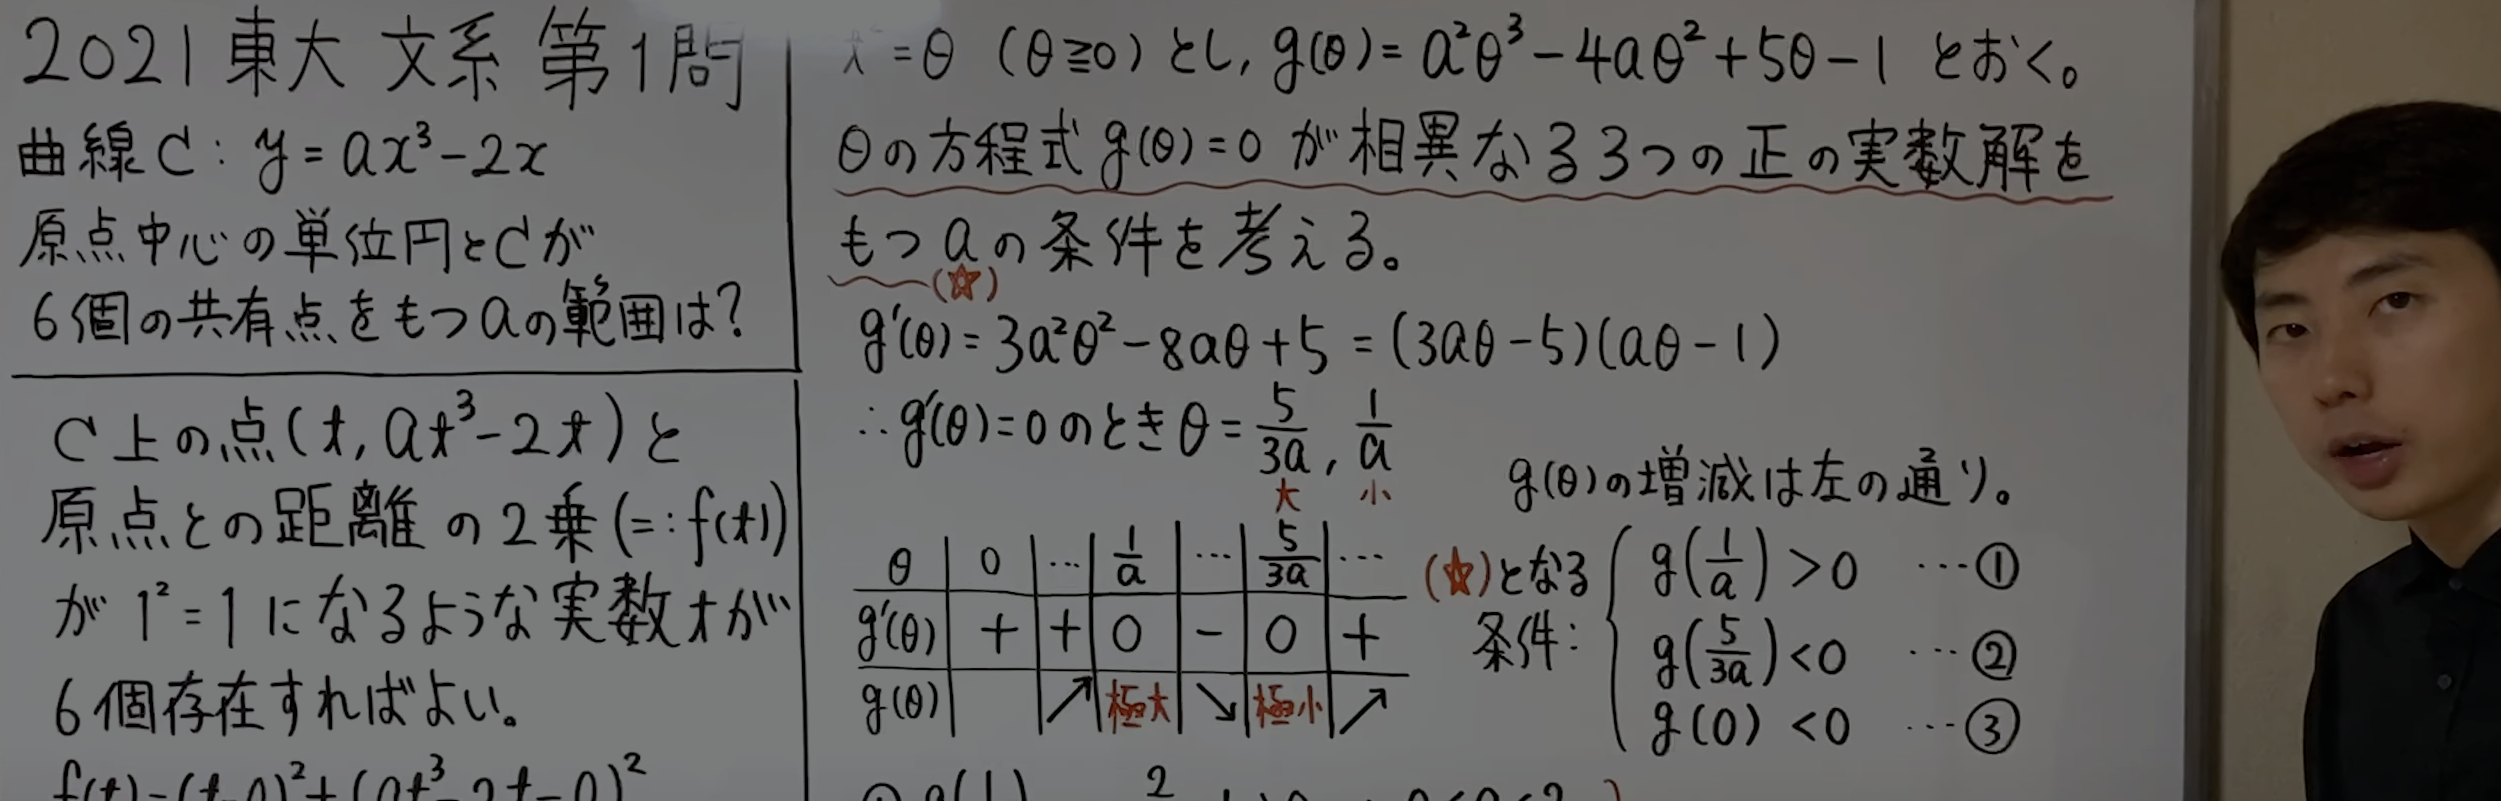 2021 東大 文系 第1問
曲線C: y = ax³-2x
原点中心の単位円とCが
6個の共有点をもつaの範囲は?
C上の点(t, at³-2t)と
原点との距離の2乗(=: f(t))
が 1²=1 になるような実数tが
6個存在すればよい。
f(t)=(t-0)²+(at³-2t-0)²
= θ (θ≧0) とし, g(θ)= a²θ³-4aθ²+5θ-1 とおく。
θの方程式 g(θ)=0 が相異なる3つの正の実数解を
もつ a の条件を考える。
(☆)
g'(θ)= 3a²θ²-8aθ+5 = (3aθ-5)(aθ-1)
∴ g'(θ)=0 のとき θ = 5/3a, 1/a
大 小
g(θ)の増減は左の通り。
θ 0 … 1/a … 5/3a …
g'(θ) + + 0 - 0 +
g(θ) ↗ 極大 ↘ 極小 ↗
(☆)となる
条件:
g(1/a) > 0 …①
g(5/3a) < 0 …②
g(0) < 0 …③